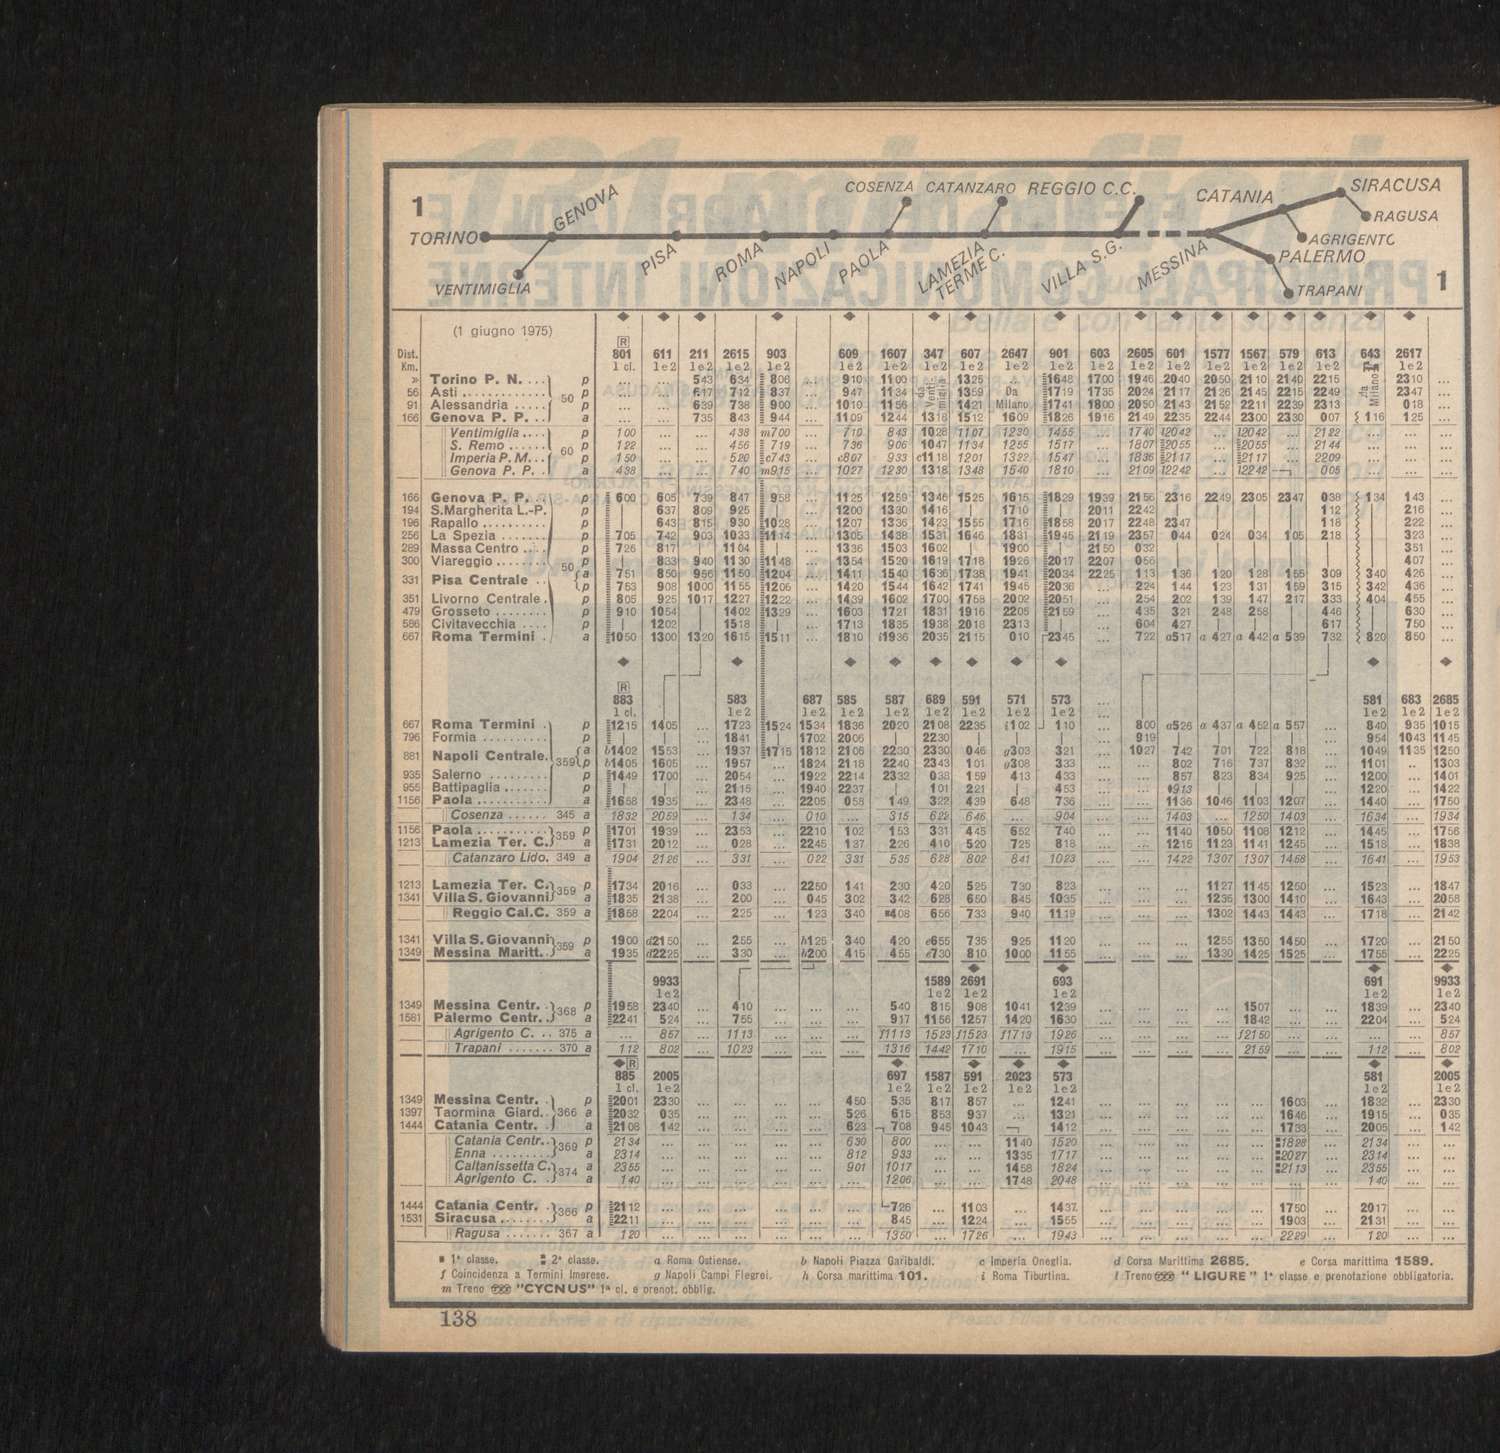 COSENZA CATANZARO REGGIO C.C. CATANIA SIRACUSA
1 GENOVA RAGUSA
TORINO PISA ROMA NAPOLI PAOLA LAMEZIA TERME C. VILLA S.G. MESSINA AGRIGENTO
PALERMO
VENTIMIGLIA TRAPANI 1
(1 giugno 1975)
Dist. 801 611 211 2615 903 609 1607 347 607 2647 901 603 2605 601 1577 1567 579 613 643 2617
Km. 1 cl. 1e2 1e2 1e2 1e2 1e2 1e2 1e2 1e2 1e2 1e2 1e2 1e2 1e2 1e2 1e2 1e2 1e2 1e2
» Torino P. N. ... p ... ... 543 634 806 ... 910 1100 da Ventimiglia 1325 ... 1648 1700 1946 2040 2050 2110 2140 2215 da Milano 2310 ...
56 Asti ... 50 p ... ... 617 712 837 ... 947 1134 1359 Da 1719 1735 2024 2117 2126 2145 2215 2249 2347 ...
91 Alessandria ... p ... ... 639 738 900 ... 1010 1156 1421 Milano 1741 1800 2050 2143 2152 2211 2239 2313 018 ...
166 Genova P. P. .. a ... ... 735 843 944 ... 1109 1244 1318 1512 1609 1826 1916 2149 2235 2244 2300 2330 007 116 125 ...
Ventimiglia .... p 100 ... ... 438 m700 ... 710 843 1028 1107 1230 1455 ... 1740 l2042 ... l2042 ... 2122 ... ... ...
S. Remo ... 60 p 122 ... ... 456 719 ... 736 906 1047 1134 1255 1517 ... 1807 2055 ... 2055 ... 2144 ... ... ...
Imperia P.M... p 150 ... ... 520 c743 ... c807 933 c1118 1201 1322 1547 ... 1836 2117 ... 2117 ... 2209 ... ... ...
Genova P. P. . a 438 ... ... 740 m915 ... 1027 1230 1318 1348 1540 1810 ... 2109 l2242 ... l2242 005 ... ... ...
166 Genova P. P. .. p 600 605 739 847 958 ... 1125 1259 1346 1525 1615 1829 1939 2156 2316 2249 2305 2347 038 134 143 ...
194 S.Margherita L.-P. p | 637 809 925 | ... 1200 1330 1416 | 1710 | 2011 2242 | | | | 112 216 ...
196 Rapallo .......... p | 643 815 930 1028 ... 1207 1336 1423 1555 1716 1858 2017 2248 2347 | | | 118 222 ...
256 La Spezia ........ p 705 742 903 1033 1114 ... 1305 1438 1531 1646 1831 1945 2119 2357 044 024 034 105 218 323 ...
289 Massa Centro .... p 726 817 | 1104 | ... 1336 1503 1602 | 1900 | 2150 032 | | | | | 351 ...
300 Viareggio ........ 50 p | 833 940 1130 1148 ... 1354 1520 1619 1718 1926 2017 2207 056 | | | | | 407 ...
331 Pisa Centrale .. a 751 850 956 1150 1204 ... 1411 1540 1636 1738 1941 2034 2225 113 136 120 128 155 309 340 426 ...
p 753 908 1000 1155 1206 ... 1420 1544 1642 1741 1945 2036 ... 224 144 123 131 159 315 342 436 ...
351 Livorno Centrale . p 805 925 1017 1227 1222 ... 1439 1602 1700 1758 2002 2051 ... 254 202 139 147 217 333 404 455 ...
479 Grosseto ........ p 910 1054 | 1402 1329 ... 1603 1721 1831 1916 2205 2159 ... 435 321 248 258 | 446 630 ...
586 Civitavecchia .... p | 1202 | 1518 | ... 1713 1835 1938 2018 2313 | ... 604 427 | | | 617 750 ...
667 Roma Termini . a 1050 1300 1320 1615 1511 ... 1810 i1936 2035 2115 010 2345 ... 722 a517 a 427 a 442 a 539 732 820 850 ...
R
883 583 687 585 587 689 591 571 573 581 683 2685
1 cl. 1e2 1e2 1e2 1e2 1e2 1e2 1e2 1e2 1e2 1e2 1e2
667 Roma Termini . p 1215 1405 1723 1524 1534 1836 2020 2108 2235 i102 110 ... 800 a526 a 437 a 452 a 557 840 935 1015
796 Formia .......... p | | 1841 | 1702 2006 | 2230 | | | ... 919 | | | | 954 1043 1145
881 Napoli Centrale. a b1402 1553 ... 1937 1715 1812 2106 2230 2330 046 g303 321 ... 1027 742 701 722 818 ... 1049 1135 1250
359 p b1405 1605 ... 1957 ... 1824 2118 2240 2343 101 g308 333 ... ... 802 716 737 832 ... 1101 .. 1303
935 Salerno ......... p 1449 1700 ... 2054 ... 1922 2214 2332 038 159 413 433 ... ... 857 823 834 925 ... 1200 ... 1401
955 Battipaglia ....... p | | ... 2115 ... 1940 2237 | 101 221 | 453 ... ... 913 | | | ... 1220 ... 1422
1156 Paola ............ a 1658 1935 ... 2348 ... 2205 058 149 322 439 648 736 ... ... 1136 1046 1103 1207 ... 1440 ... 1750
Cosenza ...... 345 a 1832 2059 ... 134 ... 010 ... 315 622 646 ... 904 ... ... 1403 ... 1250 1403 ... 1634 ... 1934
1156 Paola .......... 359 p 1701 1939 ... 2353 ... 2210 102 153 331 445 652 740 ... ... 1140 1050 1108 1212 ... 1445 ... 1756
1213 Lamezia Ter. C. a 1731 2012 ... 028 ... 2245 137 226 410 520 725 818 ... ... 1215 1123 1141 1245 ... 1518 ... 1838
Catanzaro Lido. 349 a 1904 2126 ... 331 ... 022 331 535 628 802 841 1023 ... ... 1422 1307 1307 1458 ... 1641 ... 1953
1213 Lamezia Ter. C. 359 p 1734 2016 ... 033 ... 2250 141 230 420 525 730 823 ... ... ... 1127 1145 1250 ... 1523 ... 1847
1341 Villa S. Giovanni a 1835 2138 ... 200 ... 045 302 342 628 650 845 1035 ... ... ... 1235 1300 1410 ... 1643 ... 2058
Reggio Cal.C. 359 a 1858 2204 ... 225 ... 123 340 ■408 656 733 940 1119 ... ... ... 1302 1443 1443 ... 1718 ... 2142
1341 Villa S. Giovanni 359 p 1900 d2150 ... 255 ... h125 340 420 e655 735 925 1120 ... ... ... 1255 1350 1450 ... 1720 ... 2150
1349 Messina Maritt. . a 1935 d2225 ... 330 ... h200 415 455 e730 810 1000 1155 ... ... ... 1330 1425 1525 ... 1755 ... 2225
9933 1589 2691 693 691 9933
1e2 1e2 1e2 1e2 1e2 1e2
1349 Messina Centr. . 368 p 1958 2340 ... 410 540 815 908 1041 1239 ... ... ... ... 1507 ... ... 1839 ... 2340
1581 Palermo Centr. . a 2241 524 ... 755 917 1156 1257 1420 1630 ... ... ... ... 1842 ... ... 2204 ... 524
Agrigento C. .. 375 a ... 857 ... 1113 f1113 1523 f1523 f1713 1926 ... ... ... ... f2150 ... ... ... ... 857
Trapani ....... 370 a 112 802 ... 1023 1316 1442 1710 ... 1915 ... ... ... ... 2159 ... ... 112 ... 802
R
885 2005 697 1587 591 2023 573 581 2005
1 cl. 1e2 1e2 1e2 1e2 1e2 1e2 1e2 1e2
1349 Messina Centr. . p 2001 2330 ... ... ... ... 450 535 817 857 ... 1241 ... ... ... ... ... 1603 ... 1832 ... 2330
1397 Taormina Giard. . 366 a 2032 035 ... ... ... ... 526 615 853 937 ... 1321 ... ... ... ... ... 1646 ... 1915 ... 035
1444 Catania Centr. . a 2108 142 ... ... ... ... 623 708 945 1043 1412 ... ... ... ... ... 1733 ... 2005 ... 142
Catania Centr.. 369 p 2134 ... ... ... ... ... 630 800 ... ... 1140 1520 ... ... ... ... ... 1828 ... 2134 ... ...
Enna ......... a 2314 ... ... ... ... ... 812 933 ... ... 1335 1717 ... ... ... ... ... 2027 ... 2314 ... ...
Caltanissetta C. 374 a 2355 ... ... ... ... ... 901 1017 ... ... 1458 1824 ... ... ... ... ... 2113 ... 2355 ... ...
Agrigento C. . a 140 ... ... ... ... ... ... 1206 ... ... 1748 2048 ... ... ... ... ... ... ... 140 ... ...
1444 Catania Centr. . 366 p 2112 ... ... ... ... ... ... 726 ... 1103 ... 1437 ... ... ... ... ... 1750 ... 2017 ... ...
1531 Siracusa ........ a 2211 ... ... ... ... ... ... 845 ... 1224 ... 1555 ... ... ... ... ... 1903 ... 2131 ... ...
Ragusa ....... 367 a 120 ... ... ... ... ... ... 1350 ... 1726 ... 1943 ... ... ... ... ... 2229 ... 120 ... ...
■ 1ª classe. 2ª classe. a Roma Ostiense. b Napoli Piazza Garibaldi. c Imperia Oneglia. d Corsa Marittima 2685. e Corsa marittima 1589.
f Coincidenza a Termini Imerese. g Napoli Campi Flegrei. h Corsa marittima 101. i Roma Tiburtina. l Treno "LIGURE" 1ª classe e prenotazione obbligatoria.
m Treno "CYCNUS" 1ª cl. e prenot. obblig.
138